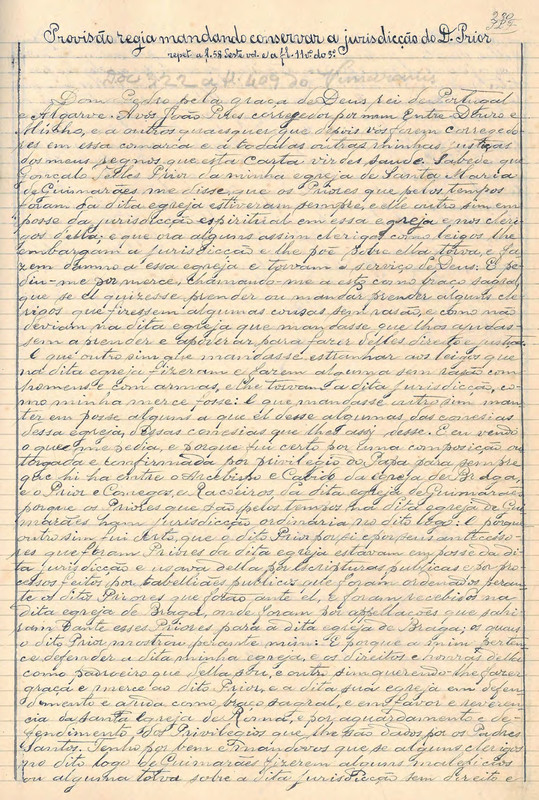 Provisão regia mandando conservar a jurisdicção do D. Prior
repet. a f. 58 deste vol. e a fl. 110 do 9º
Doc 322 a fl. 409 do Vimaranis
Dom Pedro pela graça de Deus rei de Portugal
e Algarve. A vós João Pires corregedor por mim Entre Douro e
Minho, e a outros quaesquer que depois vós forem corregedo-
res em essa comarca e a todalas outras minhas justiças
dos meus regnos que esta carta virdes saude. Sabede que
Gonçalo Telles Prior da minha egreja de Santa Maria
de Guimarães me disse, que os Priores que pelos tempos
foram da dita egreja estiveram sempre, e elle outro sim em
posse da jurisdicção espiritual em essa egreja e nos cleri-
gos della: e que ora alguns assim clerigos como leigos lhe
embargam a jurisdicção e lhe põe sobre ella torva, e fa-
zem damno a essa egreja e torvam o serviço de Deus: E pe-
diu-me por merce, chamando-me a esto como braço sagral,
que se el quizesse prender ou mandar prender alguns cle-
rigos que fizessem algumas cousas sem rasão, e como não
deviam na dita egreja que mandasse que lhos ajudas-
sem a prender e apoderar para fazer delles direito e justiça.
E que outro sim que mandasse estranhar aos leigos que
na dita egreja fizeram e fazem alguma sem rasão com
homens e com armas, e lhe torvam a dita jurisdicção, co-
mo minha merce fosse: E que mandasse outro sim man-
ter em posse alguns a que el desse algumas das conesias
dessa egreja, dessas conesias que lhes assi desse. E eu vendo
o que me pedia, e porque fui certo por uma composição ou-
torgada e confirmada por privilegio do Papa para sempre
que foi ha entre o Arcebispo e Cabido da egreja de Braga,
e o Prior e Conegos, e Raçoeiros da dita egreja de Guimarães
porque os Priores que são pelos tempos na dita egreja de Gui-
marães ham jurisdicção ordinaria no dito logo: E porque
outro sim fui certo, que o dito Prior por si e por seus antecesso-
res que foram Priores da dita egreja estavam em posse da di-
ta jurisdicção e usava della por escripturas publicas e por pro-
cessos feitos por tabelliães publicos que foram ordenados peran-
te os ditos Priores que foram ante el. E foram recebidos na
dita egreja de Braga, onde foram por appellações que sahi-
ram dante esses Priores para a dita egreja de Braga; os quaes
o dito Prior mostrou perante mim: E porque a mim perten-
ce defender a dita minha egreja, e os direitos e honras della
como padroeiro que della sou, e outro sim querendo-lhe fazer
graça e merce ao dito Prior, e a dita sua egreja em defen-
dimento e ajuda como braço sagral, e em favor e reveren-
cia da Santa Egreja de Roma, e por aguardamento e de-
fencimento dos Privilegios que lhe são dados por os Padres
Santos. Tenho por bem e mandovos que se alguns clerigos
no dito logo de Guimarães fizerem alguns maleficios
ou alguma torva sobre a dita jurisdicção sem direito e